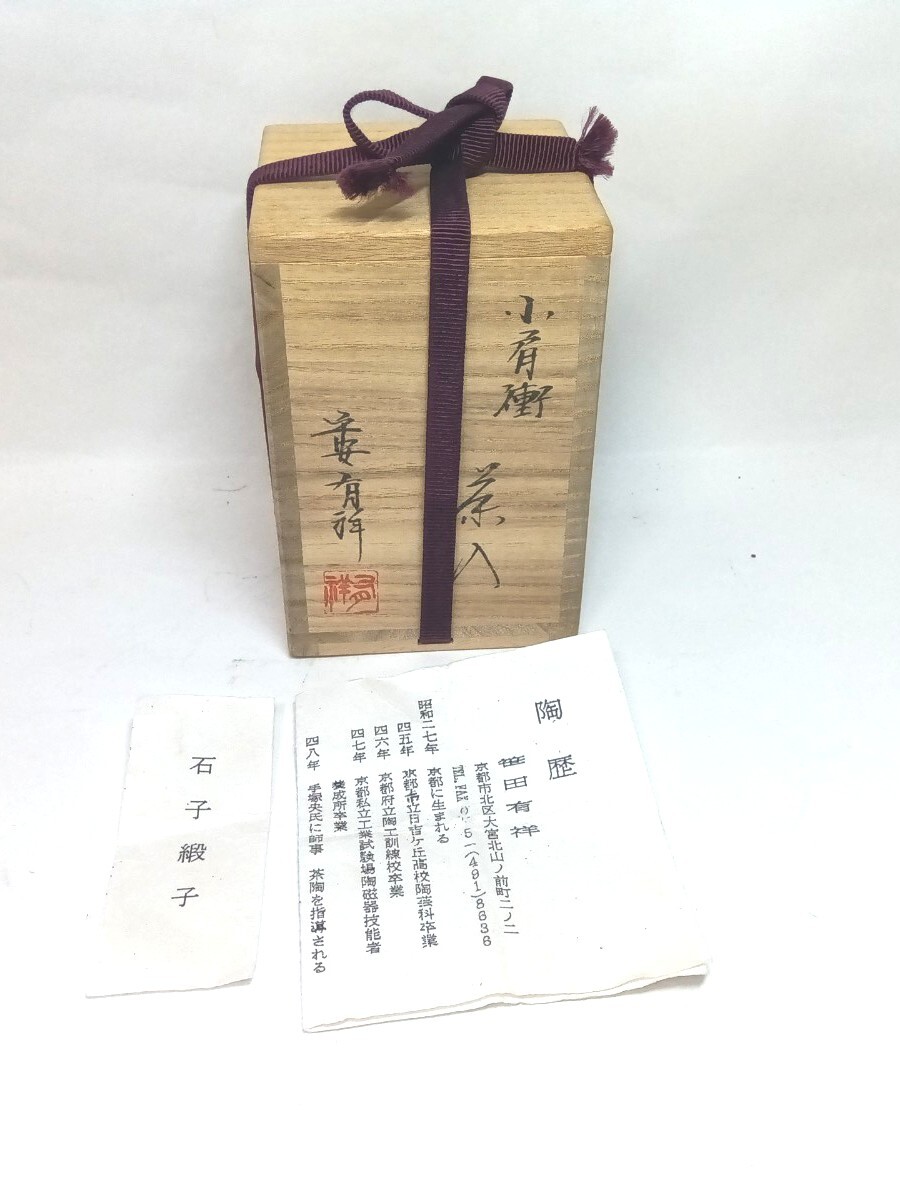 小肩衝
茶入
有祥
有祥
石子緞子
陶歴
笹田有祥
京都市北区大宮北山ノ前町二ノ二
TEL.FAX 075-(491)8636
昭和二七年 京都に生まれる
四五年 京都市立日吉ケ丘高校陶芸科卒業
四六年 京都府立陶工訓練校卒業
四七年 京都私立工業試験場陶磁器技能者
養成所卒業
四八年 手塚央氏に師事 茶陶を指導される